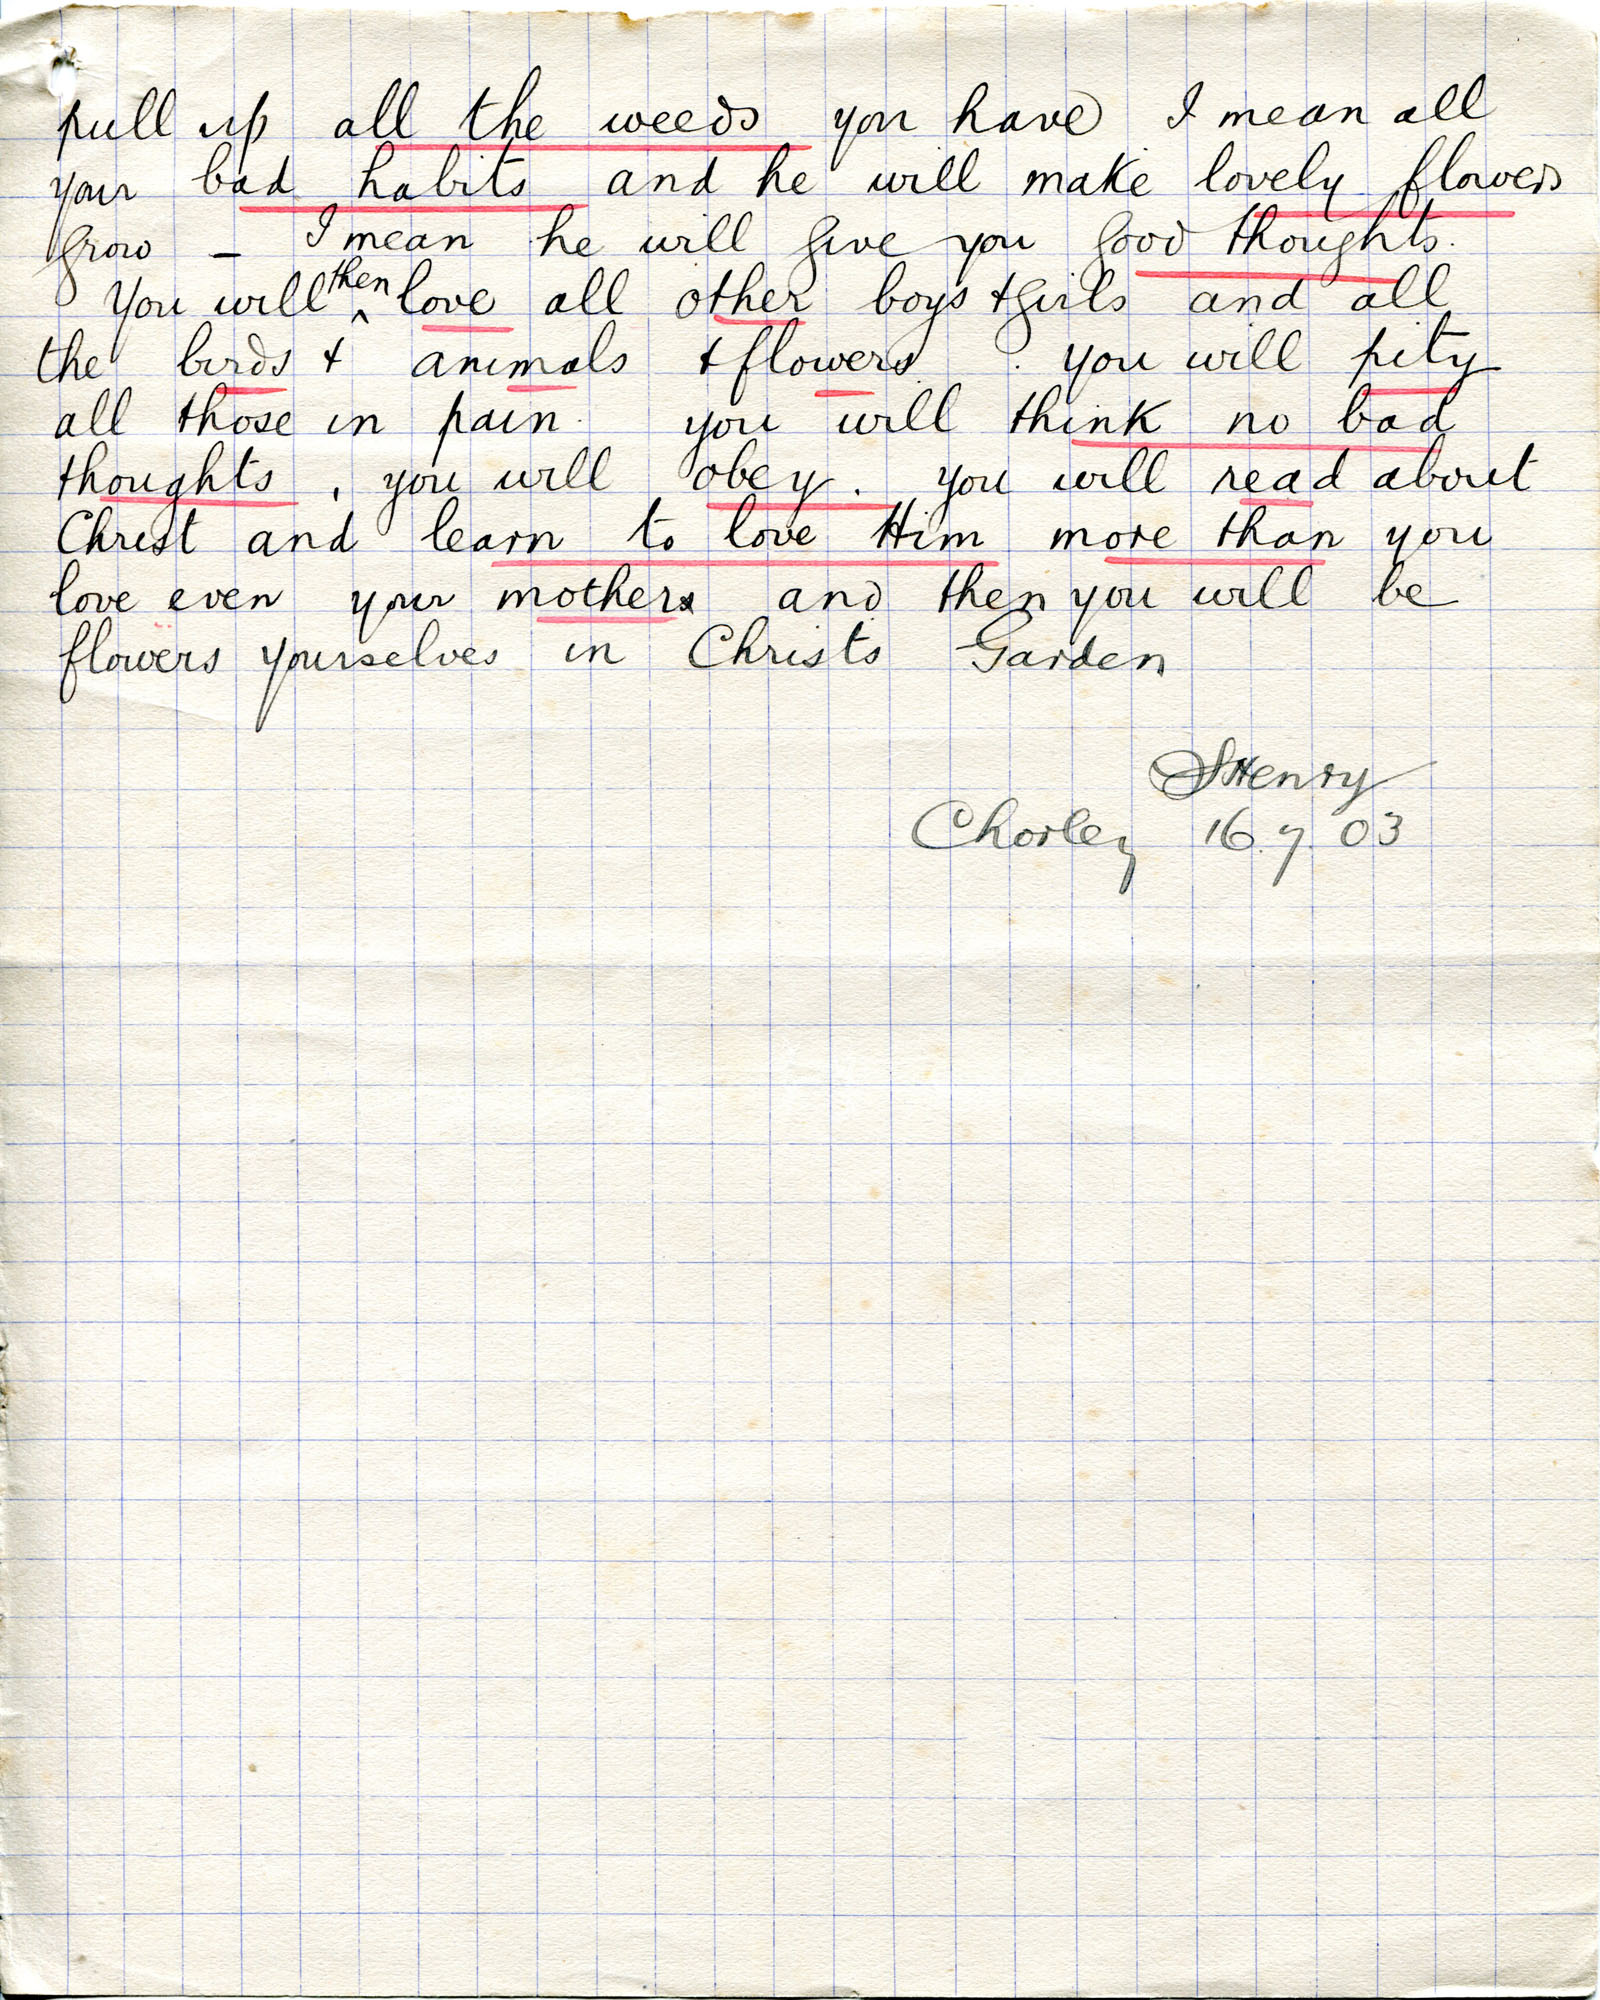 pull up all the weeds you have I mean all
your bad habits and he will make lovely flowers
grow – I mean he will give you good thoughts.
You will then love all other boys & girls and all
the birds & animals & flowers. you will pity
all those in pain. you will think no bad
thoughts, you will obey. you will read about
Christ and learn to love Him more than you
love even your mothers and then you will be
flowers yourselves in Christs Garden
SHenry
Chorley 16.7.03